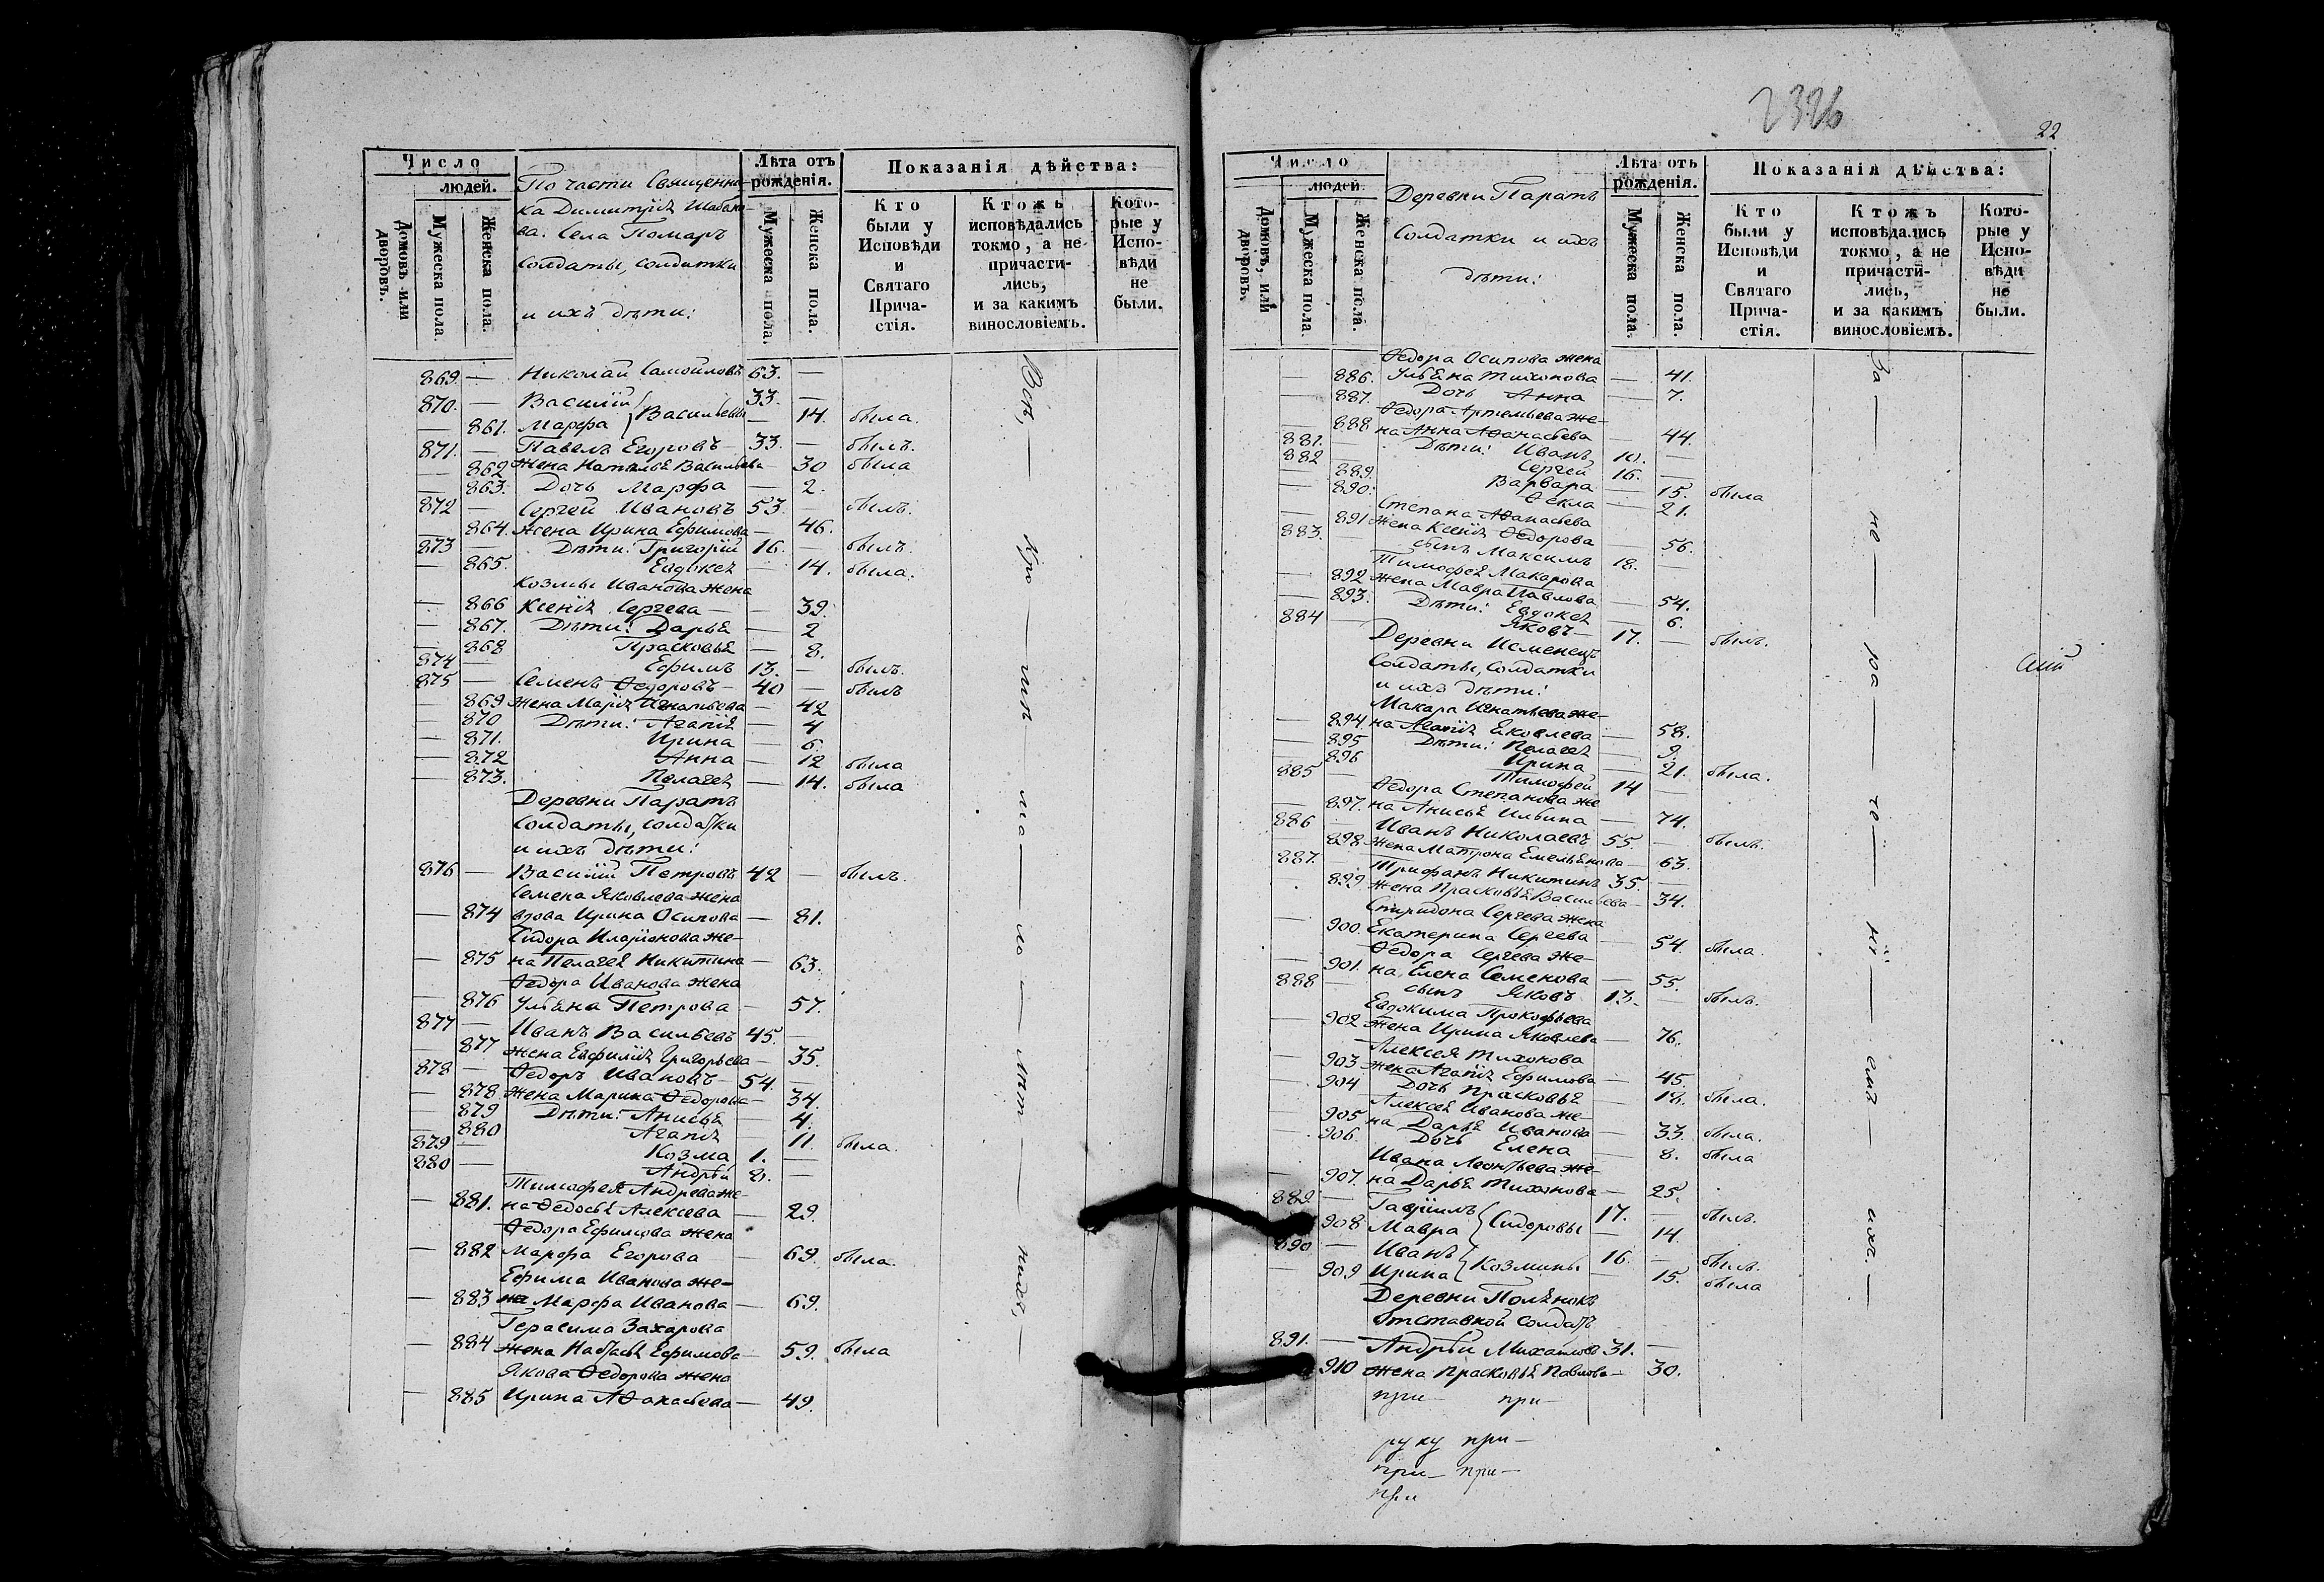 Число
людей.
Домовъ или дворовъ.
Мужеска пола.
Женска пола.
По части Священни-
ка Димитрія Шабано-
ва. Села Помаръ
Солдаты, солдатки
и ихъ дѣти:
Лѣта отъ рожденія.
Мужеска пола.
Женска пола.
Показанія дѣйства:
Кто были у Исповѣди и Святаго Прича- стія.
Ктожъ исповѣдались токмо, а не- причасти- лись, и за какимъ винословіемъ.
Кото- рые у Испо- вѣди не были.
869. — Николай Самойловъ 63. —
870. — Василій } Васильевы 33. —
— 861. Марфа — 14. была.
871. — Павелъ Егоровъ — 33. — былъ.
— 862 Жена Наталья Васильева — 30 была
— 863. Дочь Марфа — 2.
872 — Сергей Ивановъ 53. — былъ.
— 864. Жена Ирина Ефимова — 46.
873 — Дѣти: Григорій 16. — былъ.
— 865. Евдокея — 14. была.
Козмы Иванова жена
— 866 Ксенія Сергева — 39.
— 867. Дѣти: Дарья — 2
— 868 Прасковья — 8.
874 — Ефимъ 13. — былъ.
875 — Семенъ Ѳедоровъ — 40 — былъ
— 869 Жена Марія Игнатьева — 42
— 870 Дѣти: Агапія — 4
— 871. Ирина — 6.
— 872 Анна — 12 была
— 873. Пелагея — 14. была
Деревни Паратъ
Солдаты, солдатки
и ихъ дѣти:
876 — Василій Петровъ 42 — былъ.
Семена Яковлева жена
— 874 вдова Ирина Осипова — 81.
Сидора Иларіонова же-
— 875 на Пелагея Никитина — 63.
Ѳедора Иванова жена
— 876 Ульяна Петрова — 57.
877 — Иванъ Васильевъ 45. —
— 877 Жена Евфимія Григорьева — 35.
878 — Ѳедоръ Ивановъ — 54. —
— 878 Жена Марина Ѳедорова — 34.
— 879 Дѣти: Анисья — 4.
— 880 Агапія — 11. была.
879 — Козма 1. —
880 — Андрѣй 8. —
Тимофея Андрева же-
— 881. на Ѳедосья Алексева — 29.
Ѳедора Ефимова жена
— 882 Марфа Егорова — 69. была.
Ефима Иванова же-
— 883 на Марфа Иванова — 69.
Герасима Захарова
— 884 жена Настасья Ефимова — 59. была
Якова Ѳедорова жена
— 885 Ирина Аѳанасьева — 49.
Всѣ, — кро — мѣ — ма — ло — лѣт — нихъ, —
2326
22
Число
людей.
Домовъ, или дворовъ.
Мужеска пола.
Женска пола.
Деревни Паратъ
Солдатки и ихъ
дѣти:
Лѣта отъ рожденія.
Мужеска пола.
Женска пола.
Показанія дѣйства:
Кто были у Исповѣди и Святаго Прича- стія.
Ктожъ исповѣдались токмо, а не причасти- лись, и за какимъ винословіемъ.
Кото- рые у Испо- вѣди не были.
Ѳедора Осипова жена
— 886. Ульяна Тихонова — 41.
— 887. Дочь Анна — 7.
Ѳедора Артемьева же-
— 888 на Анна Аѳанасьева — 44.
881. — Дѣти: Иванъ 10. —
882 — Сергей 16. —
— 889. Варвара — 15. была
— 890. Ѳекла — 21.
Степана Аѳанасьева
— 891 Жена Ксенія Ѳедорова — 56.
883. — сынъ Максимъ 18. —
Тимофея Макарова
— 892 жена Мавра Павлова — 54.
— 893. Дѣти: Евдокея — 6.
884 — Яковъ — 17. — былъ.
Деревни Исменецъ
Солдаты, солдатки
и ихъ дѣти:
Макара Игнатьева же-
— 894 на Агапія Яковлева — 58.
— 895 Дѣти: Пелагея — 9.
— 896 Ирина — 21. была.
885 — Тимофей 14 —
Ѳедора Степанова же
— 897. на Анисья Ильина — 74.
886 — Иванъ Николаевъ 55. — былъ.
— 898 Жена Матрона Емельянова — 63.
887. — Трифонъ Никитинъ 35. —
— 899 Жена Прасковья Васильева — 34.
Спиридона Сергева жена
— 900. Екатерина Сергева — 54. была.
Ѳедора Сергева же-
— 901. на Елена Семенова — 55.
888 — сынъ Яковъ 13. — былъ.
Евдокима Прокофьева
— 902 жена Ирина Яковлева — 76.
Алексея Тихонова
— 903 жена Агапія Ефимова — 45.
— 904 Дочь Прасковья — 18. была.
Алексея Иванова же-
— 905 на Дарья Иванова — 33. была.
— 906. Дочь Елена — 8. была
Ивана Леонтьева же-
— 907. на Дарья Тихонова — 25.
889. — Гавріилъ } Сидоровы 17. — былъ.
— 908 Мавра — 14.
890 — Иванъ } Козмины 16. — былъ.
— 909 Ирина — 15. была
Деревни Полянокъ
Отставной солдатъ
891. — Андрѣй Михайловъ 31. —
— 910 жена Прасковья Павлова — 30.
За — не — ра — че — ні — емъ — ихъ. —
при — при —
руку при —
при — при —
при